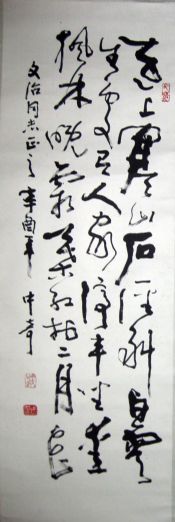 遠上寒山石徑斜白雲
生處有人家停車坐愛
楓林晚霜葉紅於二月花
文治同志正之辛酉年中